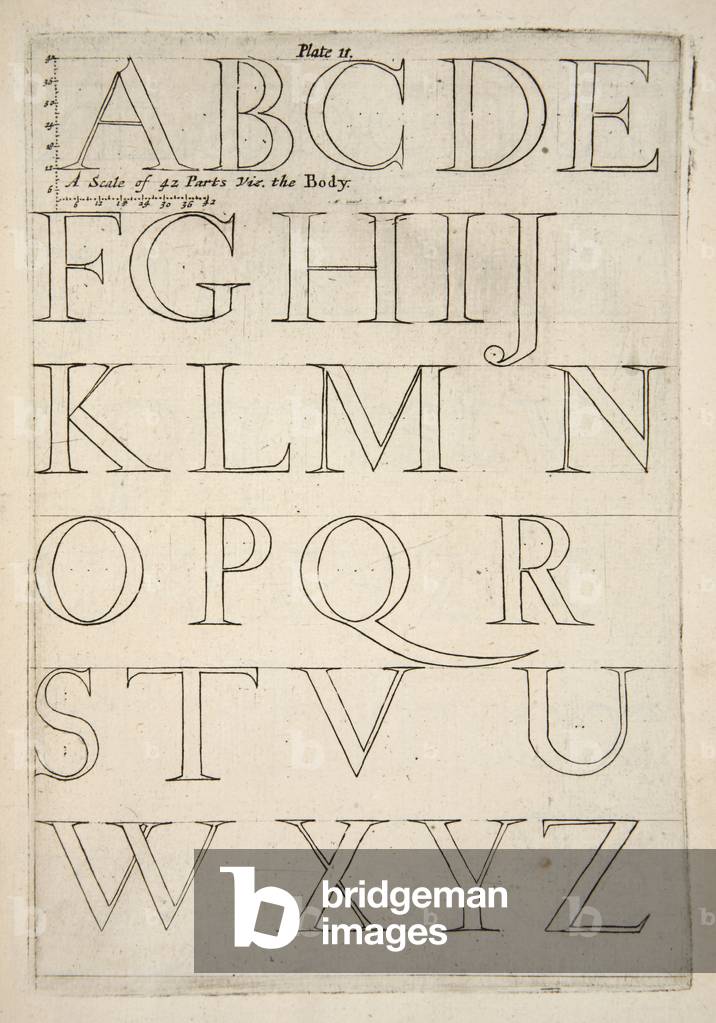 Plate 11.
42
36
30
24
18
12
6
A B C D E
A Scale of 42 Parts Viz. the Body.
6 12 18 24 30 36 42
F G H I J
K L M N
O P Q R
S T V U
W X Y Z
b bridgeman
images